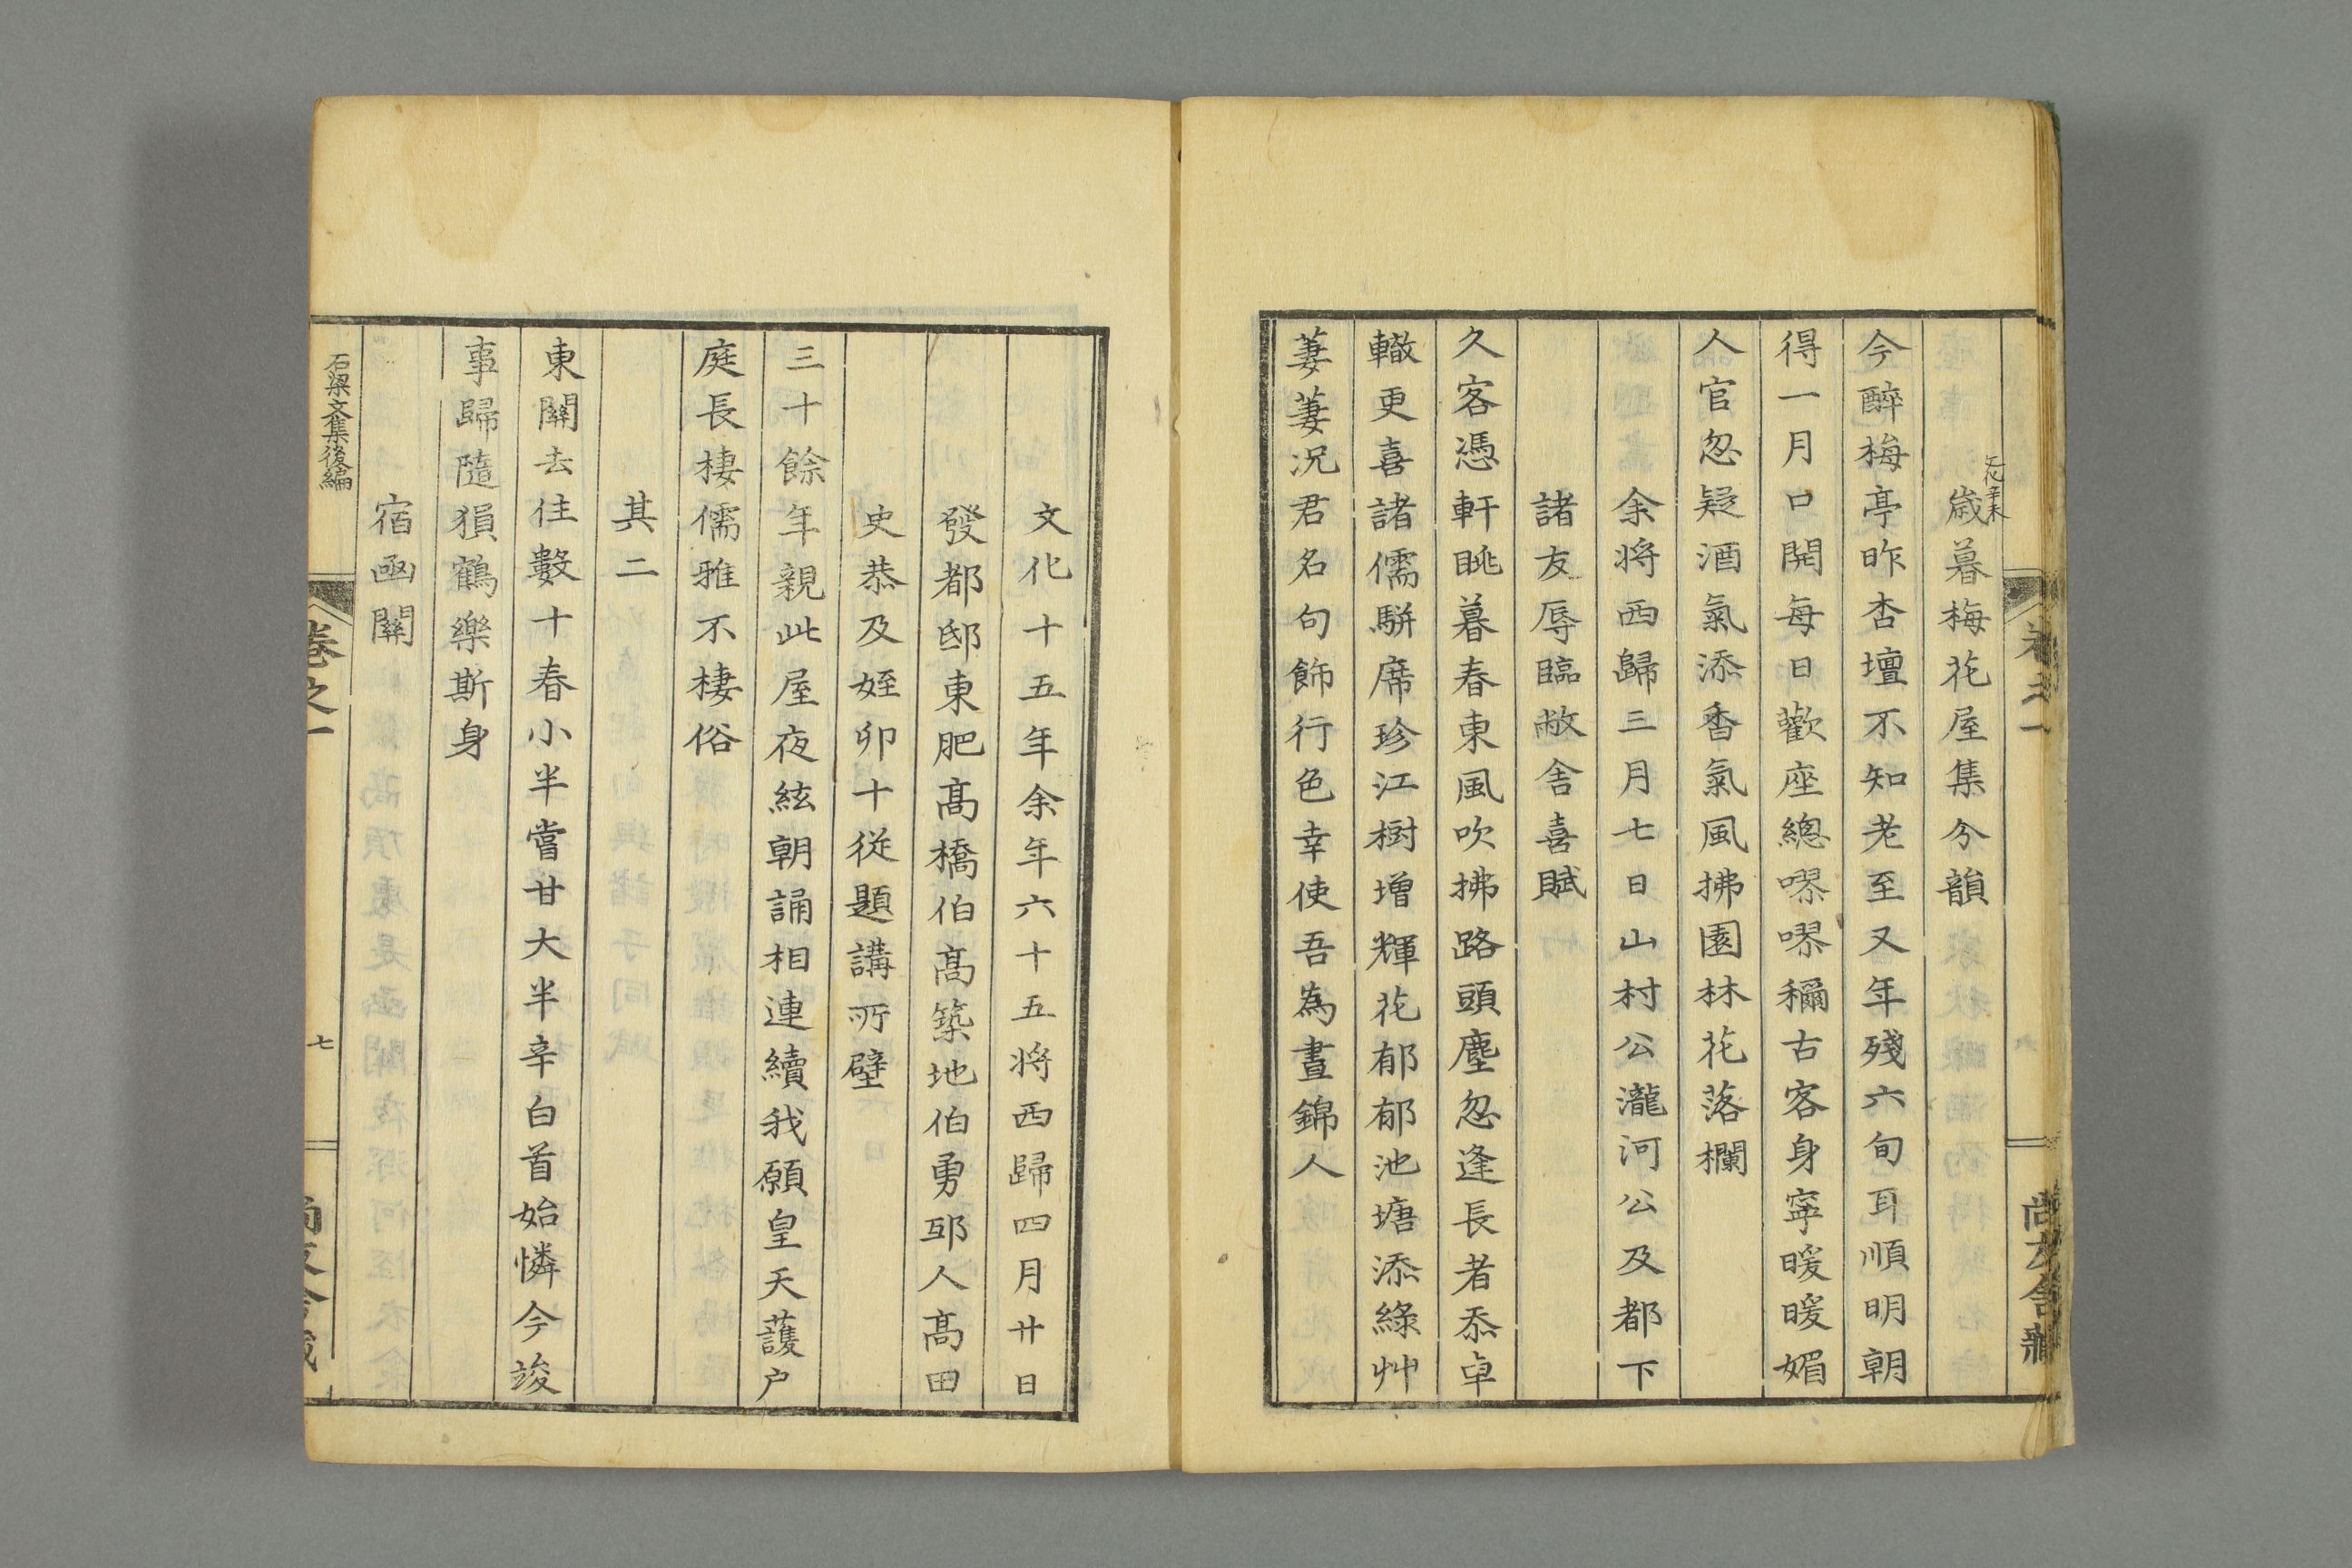 歲暮梅花屋集分韻
今醉梅亭昨杏壇不知老至又年殘六旬耳順明朝
得一月口開每日歡座總嘐嘐穪古客身寧暖暖媚
人官忽疑酒氣添香氣風拂園林花落欄
余将西歸三月七日山村公瀧河公及都下
諸友辱臨敝舍喜賦
久客憑軒眺暮春東風吹拂路頭塵忽逢長者忝卓
轍更喜諸儒駢席珍江樹增輝花郁郁池塘添綠艸
萋萋況君名句飾行色幸使吾為晝錦人
文化十五年余年六十五将西歸四月廿日
發都邸東肥髙橋伯髙築地伯勇邳人髙田
史恭及姪卯十從題講所壁
三十餘年親此屋夜絃朝誦相連續我願皇天護户
庭長棲儒雅不棲俗
其二
東關去住數十春小半嘗甘大半辛白首始憐今竣
事歸隨猨鶴樂斯身
宿凾關
石梁文集後編
卷之一
七